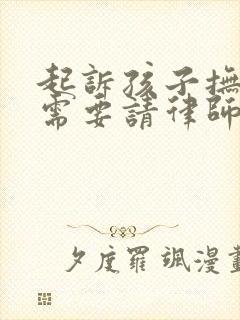 起訴孩子撫
需要請律師
夕度羅颯漫畫